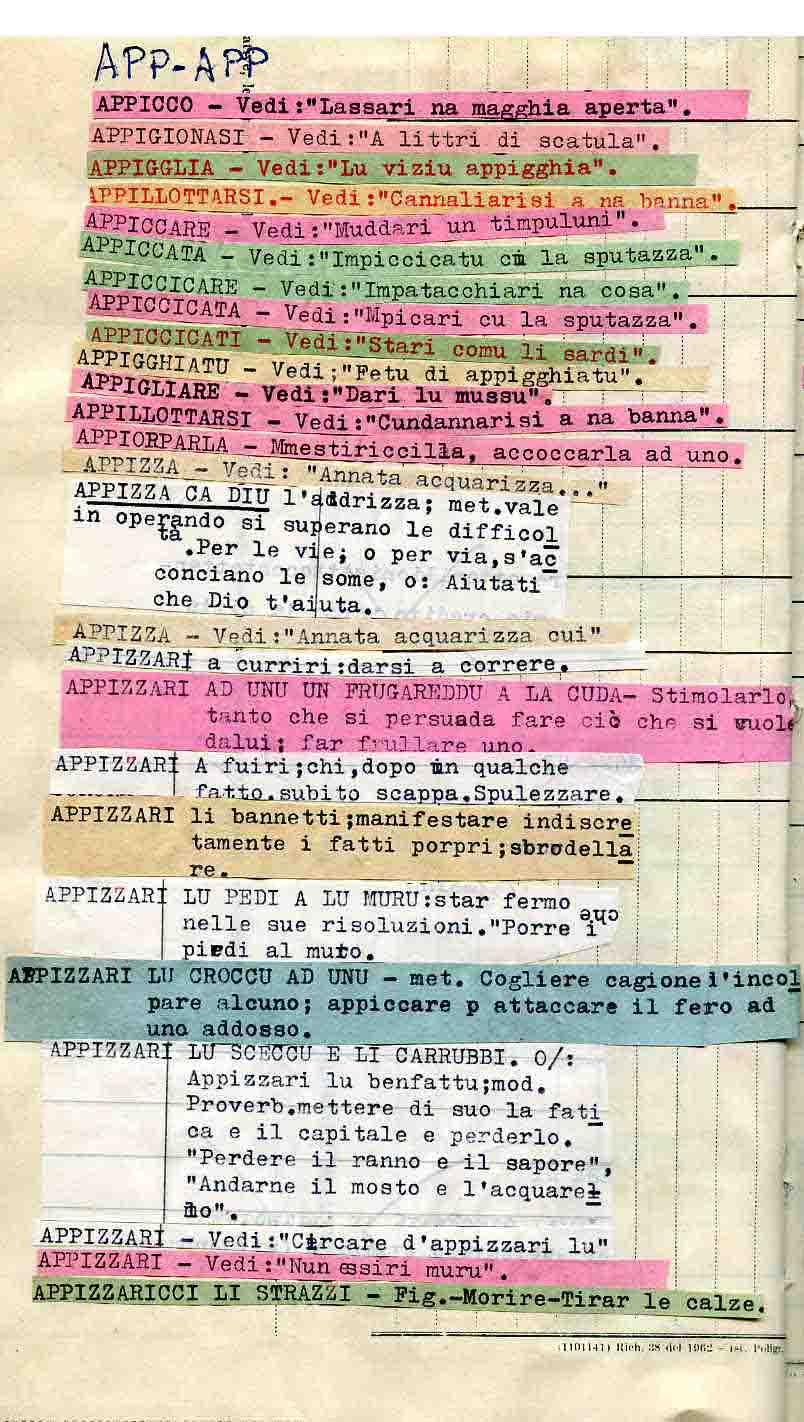 APP-APP
APPICCO - Vedi:"Lassari na magghia aperta".
APPIGIONASI - Vedi:"A littri di scatula".
APPIGGLIA - Vedi:"Lu viziu appigghia".
APPILLOTTARSI.- Vedi:"Cannaliarisi a na banna".
APPICCARE - Vedi:"Muddari un timpuluni".
APPICCATA - Vedi:"Impiccicatu cu la sputazza".
APPICCICARE - Vedi:"Impatacchiari na cosa".
APPICCICATA - Vedi:"Mpicari cu la sputazza".
APPICCICATI - Vedi:"Stari comu li sardi".
APPIGGHIATU - Vedi;"Fetu di appigghiatu".
APPIGLIARE - Vedi:"Dari lu mussu".
APPILLOTTARSI - Vedi:"Cundannarisi a na banna".
APPIORPARLA - Mmestiriccilla, accoccarla ad uno.
APPIZZA - Vedi: "Annata acquarizza..."
APPIZZA CA DIU l'addrizza; met.vale
in operando si superano le difficol
tà.Per le vie; o per via,s'ac
conciano le some, o: Aiutati
che Dio t'aiuta.
APPIZZA - Vedi:"Annata acquarizza cui"
APPIZZARI a curriri:darsi a correre.
APPIZZARI AD UNU UN FRUGAREDDU A LA CUDA- Stimolarlo,
tanto che si persuada fare ciò che si vuole
dalui; far frullare uno.
APPIZZARI A fuiri;chi,dopo un qualche
fatto.subito scappa.Spulezzare.
APPIZZARI li bannetti;manifestare indiscre
tamente i fatti porpri;sbrodella
re.
APPIZZARI LU PEDI A LU MURU:star fermo
nelle sue risoluzioni."Porre i che
piedi al muro.
APPIZZARI LU CROCCU AD UNU - met. Cogliere cagione l'incol
pare alcuno; appiccare p attaccare il fero ad
uno addosso.
APPIZZARI LU SCECCU E LI CARRUBBI. O/:
Appizzari lu benfattu;mod.
Proverb.mettere di suo la fati
ca e il capitale e perderlo.
"Perdere il ranno e il sapore",
"Andarne il mosto e l'acquarel
lo".
APPIZZARI - Vedi:"Circare d'appizzari lu"
APPIZZARI - Vedi:"Nun essiri muru".
APPIZZARICCI LI STRAZZI - Fig.-Morire-Tirar le calze.
(1101141) Rich. 38 del 1962 - Ist. Poligr.